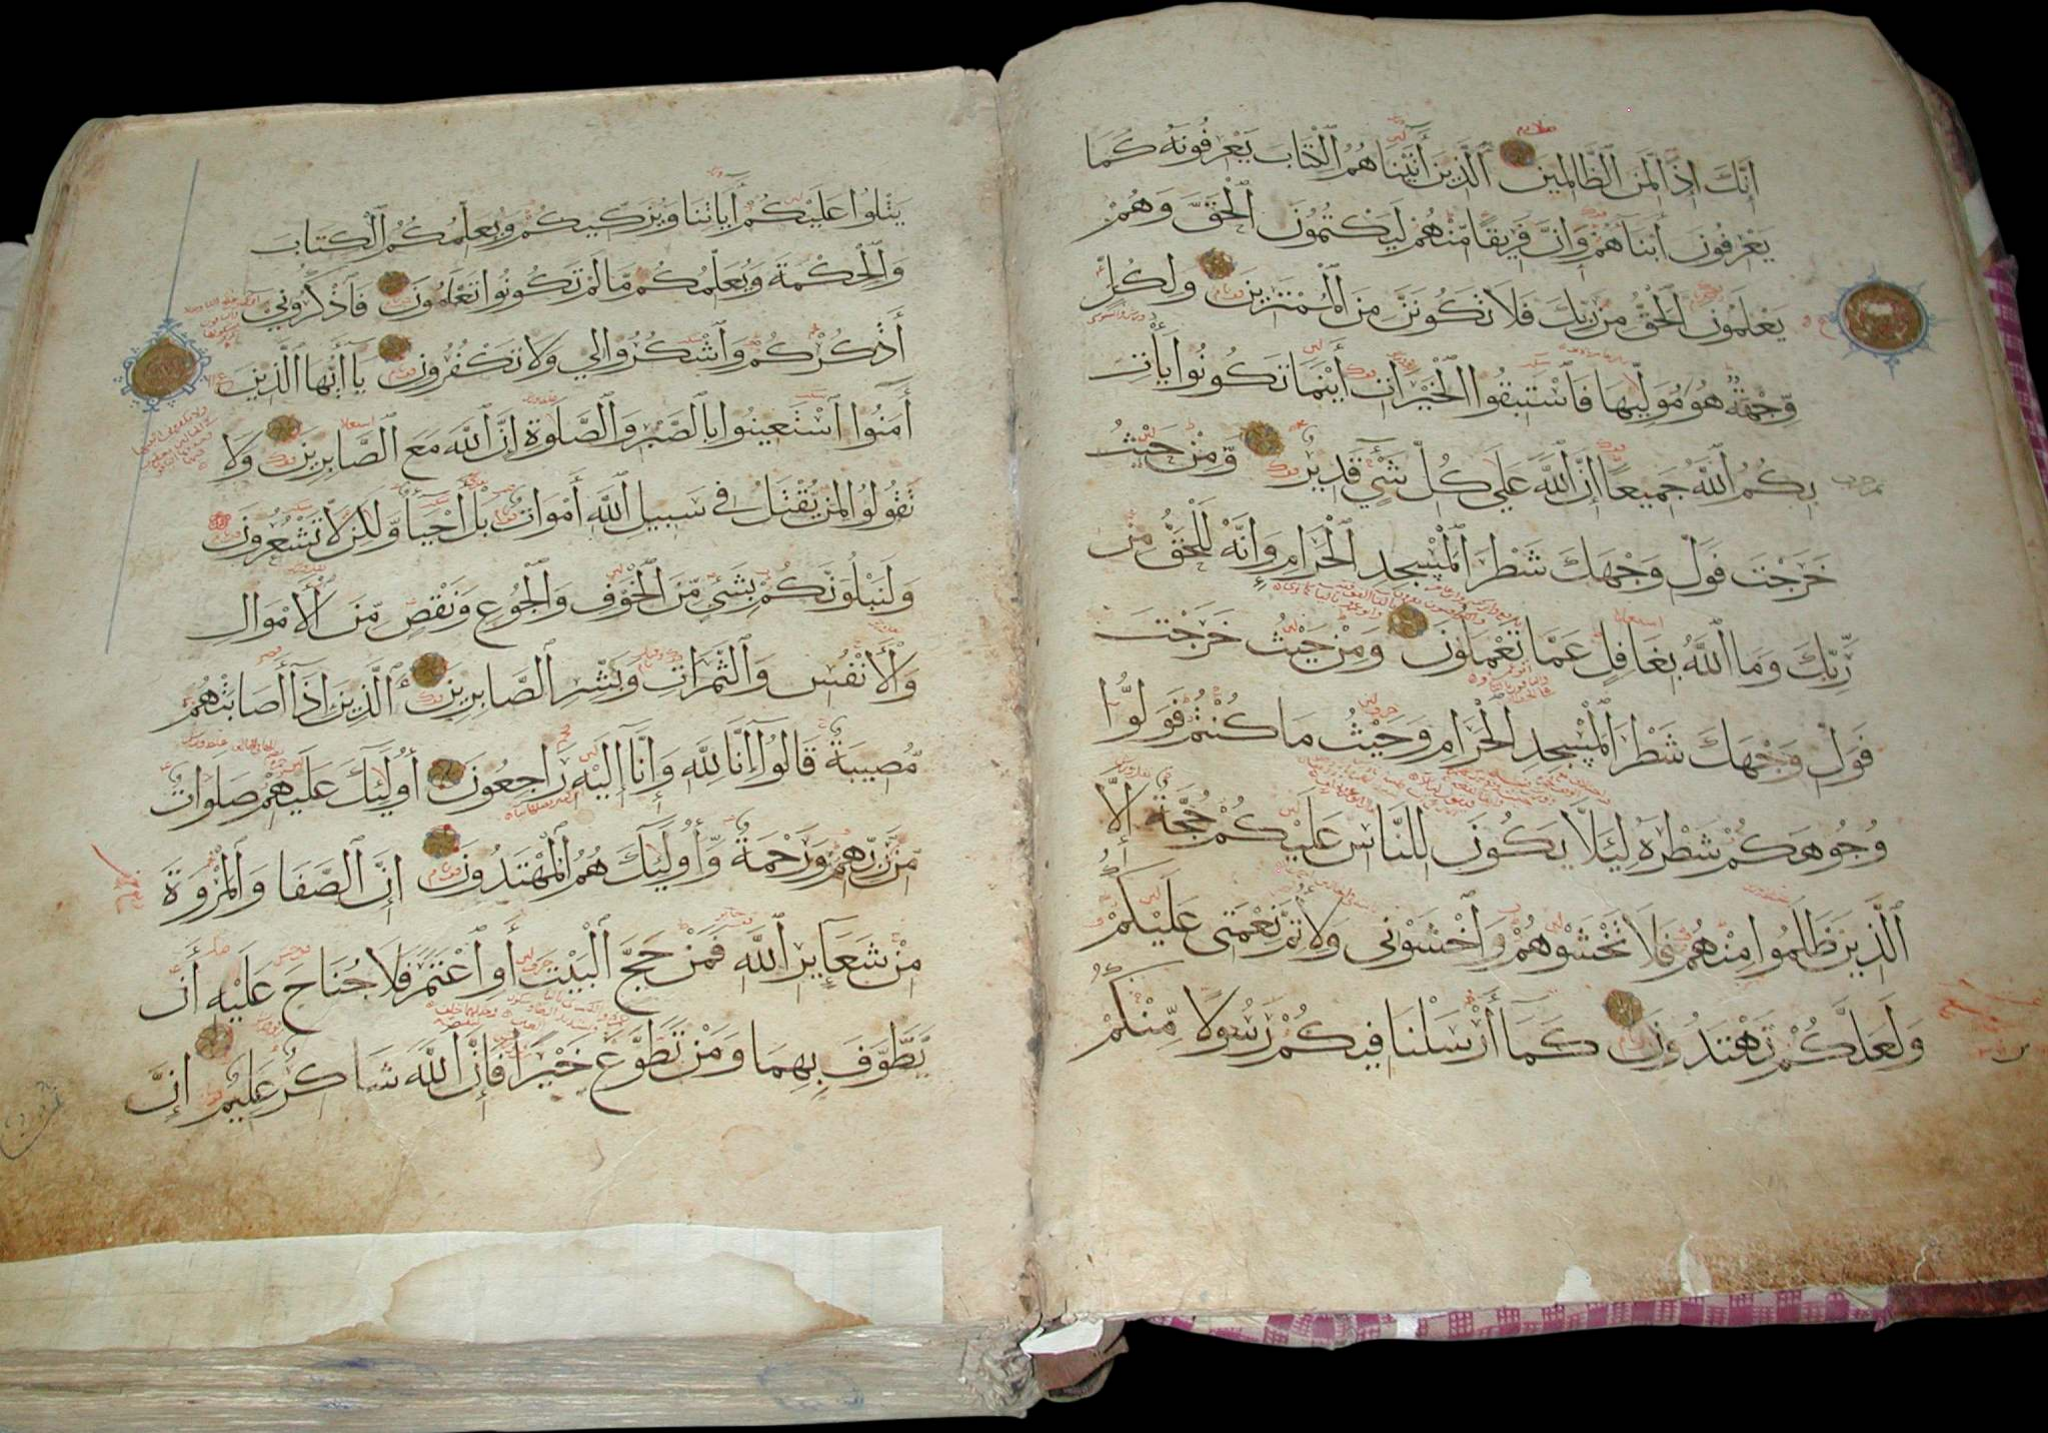 إِنَّكَ إِذًا لَّمِنَ الظَّالِمِينَ الَّذِينَ آتَيْنَاهُمُ الْكِتَابَ يَعْرِفُونَهُ كَمَا
يَعْرِفُونَ أَبْنَاءَهُمْ وَإِنَّ فَرِيقًا مِّنْهُمْ لَيَكْتُمُونَ الْحَقَّ وَهُمْ
يَعْلَمُونَ الْحَقُّ مِن رَّبِّكَ فَلَا تَكُونَنَّ مِنَ الْمُمْتَرِينَ وَلِكُلٍّ
وِجْهَةٌ هُوَ مُوَلِّيهَا فَاسْتَبِقُوا الْخَيْرَاتِ أَيْنَمَا تَكُونُوا يَأْتِ
بِكُمُ اللَّهُ جَمِيعًا إِنَّ اللَّهَ عَلَى كُلِّ شَيْءٍ قَدِيرٌ وَمِنْ حَيْثُ
خَرَجْتَ فَوَلِّ وَجْهَكَ شَطْرَ الْمَسْجِدِ الْحَرَامِ وَإِنَّهُ لَلْحَقُّ مِنْ
رَّبِّكَ وَمَا اللَّهُ بِغَافِلٍ عَمَّا تَعْمَلُونَ وَمِنْ حَيْثُ خَرَجْتَ
فَوَلِّ وَجْهَكَ شَطْرَ الْمَسْجِدِ الْحَرَامِ وَحَيْثُ مَا كُنْتُمْ فَوَلُّوا
وُجُوهَكُمْ شَطْرَهُ لِئَلَّا يَكُونَ لِلنَّاسِ عَلَيْكُمْ حُجَّةٌ إِلَّا
الَّذِينَ ظَلَمُوا مِنْهُمْ فَلَا تَخْشَوْهُمْ وَاخْشَوْنِي وَلِأُتِمَّ نِعْمَتِي عَلَيْكُمْ
وَلَعَلَّكُمْ تَهْتَدُونَ كَمَا أَرْسَلْنَا فِيكُمْ رَسُولًا مِّنْكُمْ
يَتْلُوا عَلَيْكُمْ آيَاتِنَا وَيُزَكِّيكُمْ وَيُعَلِّمُكُمُ الْكِتَابَ
وَالْحِكْمَةَ وَيُعَلِّمُكُم مَّا لَمْ تَكُونُوا تَعْلَمُونَ فَاذْكُرُونِي
أَذْكُرْكُمْ وَاشْكُرُوا لِي وَلَا تَكْفُرُونِ يَا أَيُّهَا الَّذِينَ
آمَنُوا اسْتَعِينُوا بِالصَّبْرِ وَالصَّلَوةِ إِنَّ اللَّهَ مَعَ الصَّابِرِينَ وَلَا
تَقُولُوا لِمَن يُقْتَلُ فِي سَبِيلِ اللَّهِ أَمْوَاتٌ بَلْ أَحْيَاءٌ وَلَكِن لَّا تَشْعُرُونَ
وَلَنَبْلُوَنَّكُمْ بِشَيْءٍ مِّنَ الْخَوْفِ وَالْجُوعِ وَنَقْصٍ مِّنَ الْأَمْوَالِ
وَالْأَنْفُسِ وَالثَّمَرَاتِ وَبَشِّرِ الصَّابِرِينَ الَّذِينَ إِذَا أَصَابَتْهُمْ
مُّصِيبَةٌ قَالُوا إِنَّا لِلَّهِ وَإِنَّا إِلَيْهِ رَاجِعُونَ أُولَئِكَ عَلَيْهِمْ صَلَوَاتٌ
مِّن رَّبِّهِمْ وَرَحْمَةٌ وَأُولَئِكَ هُمُ الْمُهْتَدُونَ إِنَّ الصَّفَا وَالْمَرْوَةَ
مِنْ شَعَائِرِ اللَّهِ فَمَنْ حَجَّ الْبَيْتَ أَوِ اعْتَمَرَ فَلَا جُنَاحَ عَلَيْهِ أَن
يَّطَّوَّفَ بِهِمَا وَمَنْ تَطَوَّعَ خَيْرًا فَإِنَّ اللَّهَ شَاكِرٌ عَلِيمٌ إِنَّ